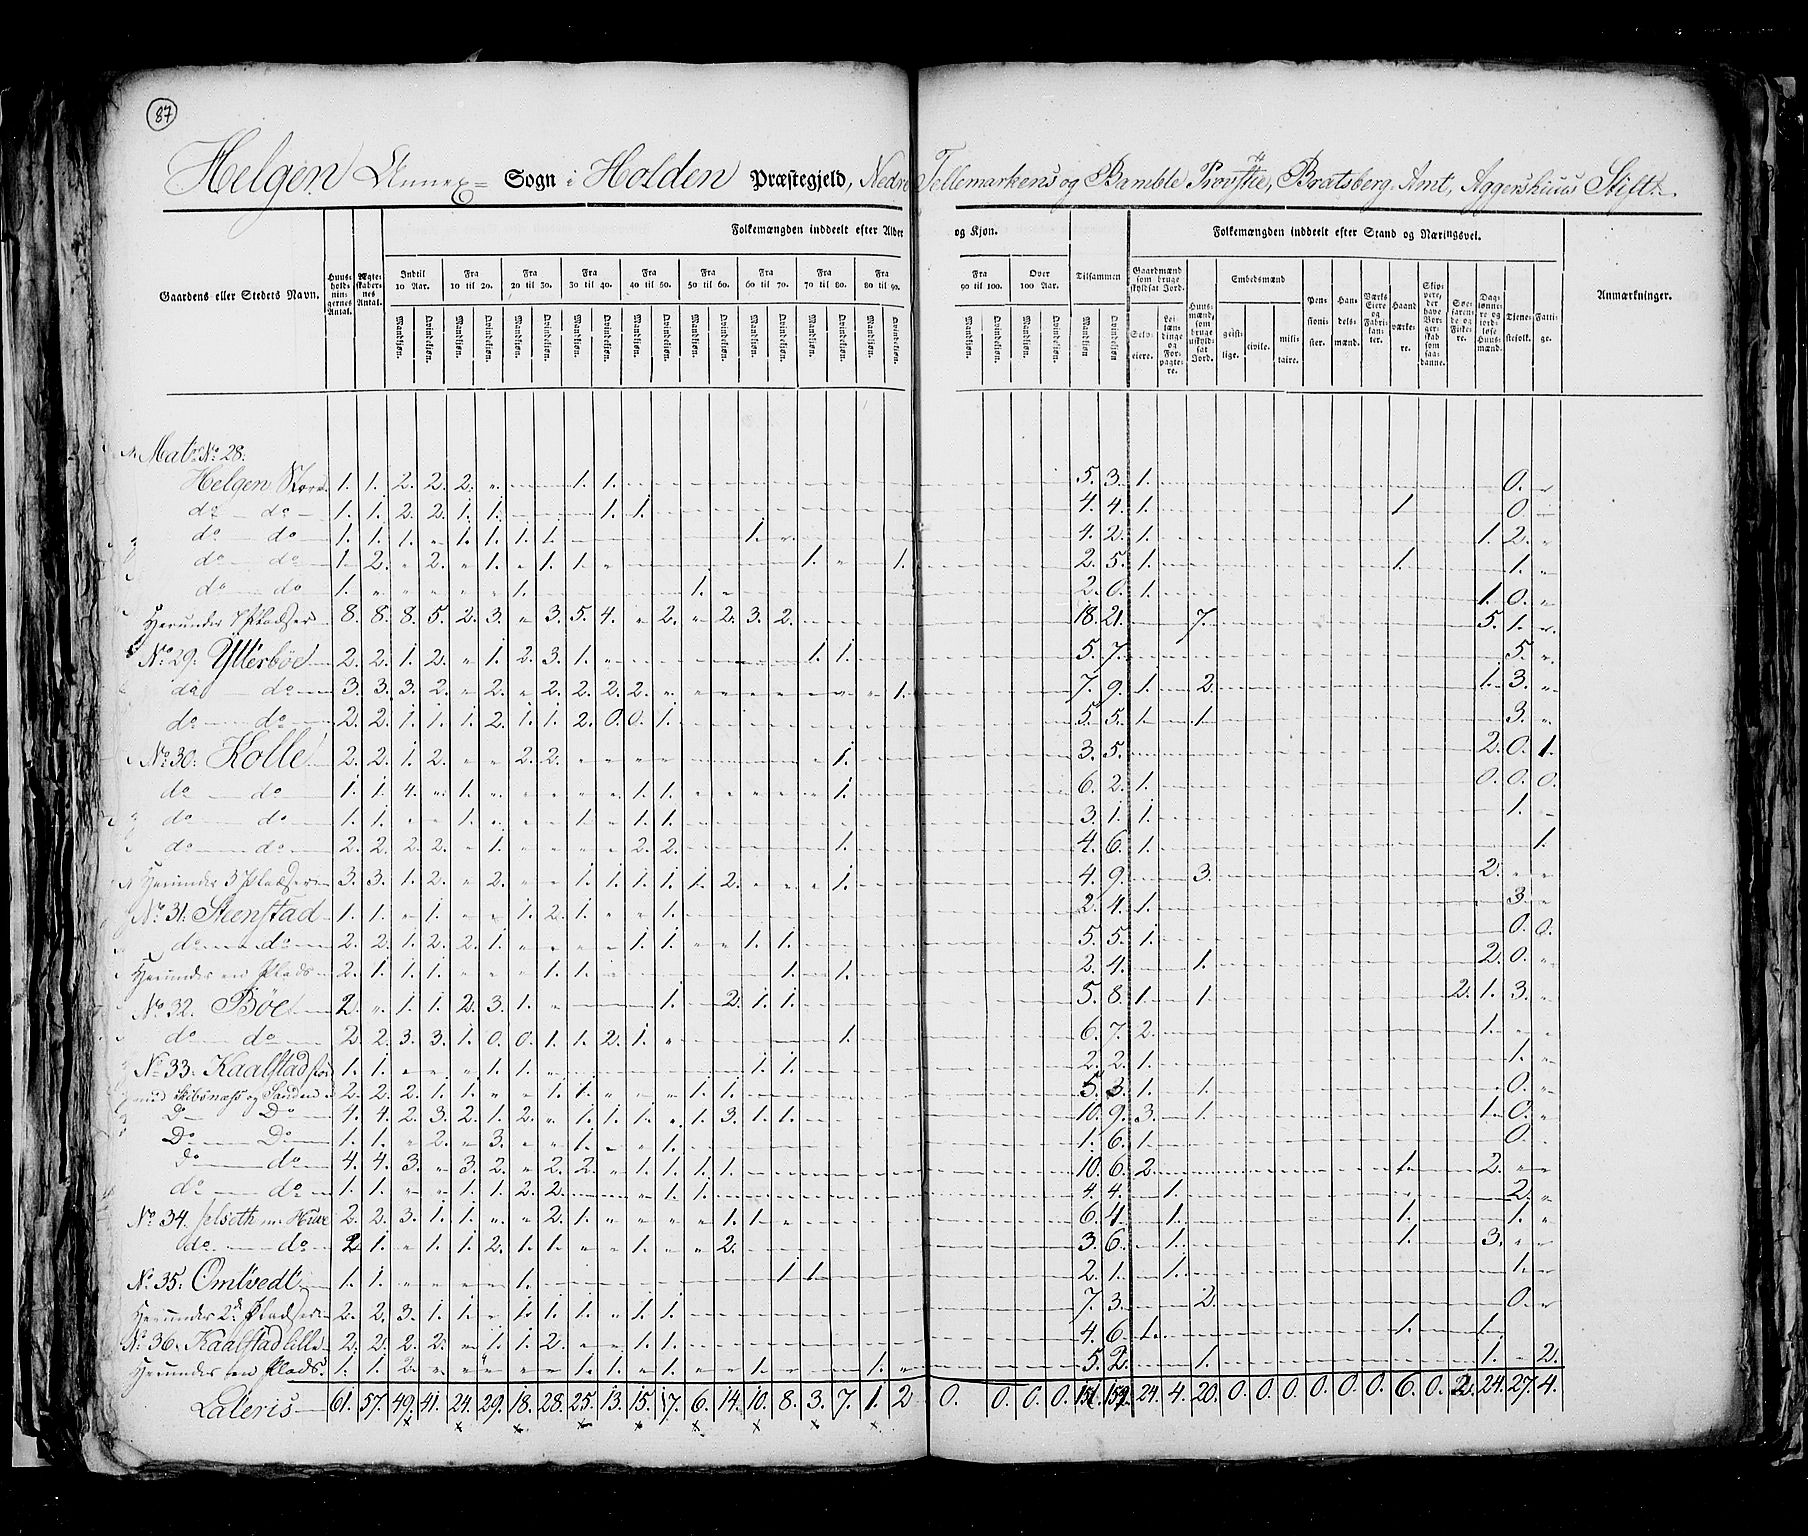 87
Helgen Annex= Sogn i Holden Præstegjeld, Nedre Tellemarkens og Bamble Provstie, Bratsberg Amt, Aggershuus Stift.
Folkemængden inddeelt efter Alder og Kjøn. Folkemængden inddeelt efter Stand og Næringsvei.
Gaardens eller Stedets Navn. Huusholdningernes Antal. Ægteskabernes Antal. Indtil 10 Aar. Fra 10 til 20. Fra 20 til 30. Fra 30 til 40. Fra 40 til 50. Fra 50 til 60. Fra 60 til 70. Fra 70 til 80. Fra 80 til 90. Fra 90 til 100. Over 100 Aar. Tilsammen Gaardmænd som bruge skyldsat Jord. Huusmænd, som bruge uskyldsat Jord. Embedsmænd Pensionister. Handelsmænd. Værks Eiere og Fabrikanter. Haandværkere. Skippere, der have Borgerskab som saadanne. Søefarende og Fiskere. Daglønnere og jordløse Huusmænd. Tjenestefolk. Fattige. Anmærkninger.
Mandkjøn. Qvindekjøn. Selveiere. Leilændinge og Forpagtere. geistlige. civile. militaire.
Mat. No 28.
Helgen Store 1. 1. 2. 2. 2. 1. 1. 5. 3. 1. 0.
do do 1. 1. 2. 2. 1. 1. 1. 1. 4. 4. 1. 1 0.
do do 1. 1. 1. 1. 1. 1. 1. 1. 4. 2. 1. 1. 2.
do do 1. 2. 2. 1. 1. 1. 1. 1. 2. 5. 1. 1. 1.
do do 1. 1. 1. 2. 0. 1. 1. 0.
Herunder 7 Pladser 8. 8. 8. 5. 2. 3. 3. 5. 4. 2. 2. 3. 2. 18. 21. 7. 5. 1.
No 29. Ytterbøe 2. 2. 1. 2. 1. 2. 3. 1. 1. 1. 5. 7. 5.
do do 3. 3. 3. 2. 2. 2. 2. 2. 2. 1. 7. 9. 1. 2. 1. 3.
do do 2. 2. 1. 1. 1. 2. 1. 1. 2. 0. 0. 1. 5. 5. 1. 1. 3.
No 30. Kolle 2. 2. 1. 2. 2. 2. 1. 3. 5. 2. 0. 1.
do do 1. 1. 4. 1. 1. 1. 1. 6. 2. 1. 0. 0. 0.
do do 1. 1. 1. 1. 1. 1. 3. 1. 1. 1.
do do 2. 2. 2. 2. 1. 2. 2. 1. 4. 6. 1. 1.
Herunder 3 Pladser 3. 3. 1. 2. 2. 1. 1. 1. 1. 1. 2. 1. 4. 9. 3. 2.
No 31. Steenstad 1. 1. 1. 1. 2. 1. 1. 2. 4. 1. 3.
do do 2. 2. 1. 2. 2. 1. 1. 1. 1. 1. 5. 5. 1. 0. 0.
Herunder en Plads 2. 1. 1. 1. 1. 1. 1. 1. 2. 4. 1. 2. 0.
No 32. Bøe 2. 1. 1. 2. 3. 1. 1. 2. 1. 1. 5. 8. 1. 1. 2. 1. 3.
do do 2. 2. 3. 3. 1. 0. 0. 1. 1. 2. 1. 1. 6. 7. 2. 1.
No 33. Kaalstad store 1. 1. 1. 1. 1. 1. 2. 2. 1. 1.
med Skibsnæss og Sanden 2. 2. 2. 1. 1. 1. 1. 1. 1. 5. 3. 1. 1. 0.
Do Do 4. 4. 2. 3. 2. 1. 2. 1. 1. 1. 1. 3. 1. 1. 10. 9. 3. 1. 1. 0.
Do Do 1. 1. 2. 3. 1. 1. 1. 6. 1. 0.
Do do 4. 4. 3. 3. 2. 2. 2. 1. 1. 1. 1. 10. 6. 2. 1. 2.
do do 1. 1. 1. 1. 2. 2. 1. 1. 4. 4. 1. 2.
No 34. Jelseth 2. 2. 3. 1. 1. 2. 1. 1. 1. 6. 4. 1. 1. 1.
do do 2. 1. 1. 1. 2. 1. 1. 1. 2. 3. 6. 1. 1. 3.
No 35. Omtvedt 1. 1. 1. 1. 1. 2. 1. 1. 1.
Herunder 2de Pladser 2. 2. 3. 1. 1. 1. 1. 1. 1. 1. 7. 3. 2. 0.
No 36. Kaalstad lille 2. 2. 2. 2. 1. 1. 2. 1. 1. 4. 6. 1. 1. 1.
Herunder en Plads 1. 1. 2. 1. 1. 1. 1. 1. 5. 2. 1. 1. 2.
Lateris 61. 57. 49. 41. 24. 29. 18. 28. 25. 13. 15. 17. 6. 14. 10. 8. 3. 7. 1. 2 0. 0. 0. 0. 151. 159. 24. 4. 20. 0. 0. 0. 0. 0. 0. 6. 0. 2. 24. 27. 4.